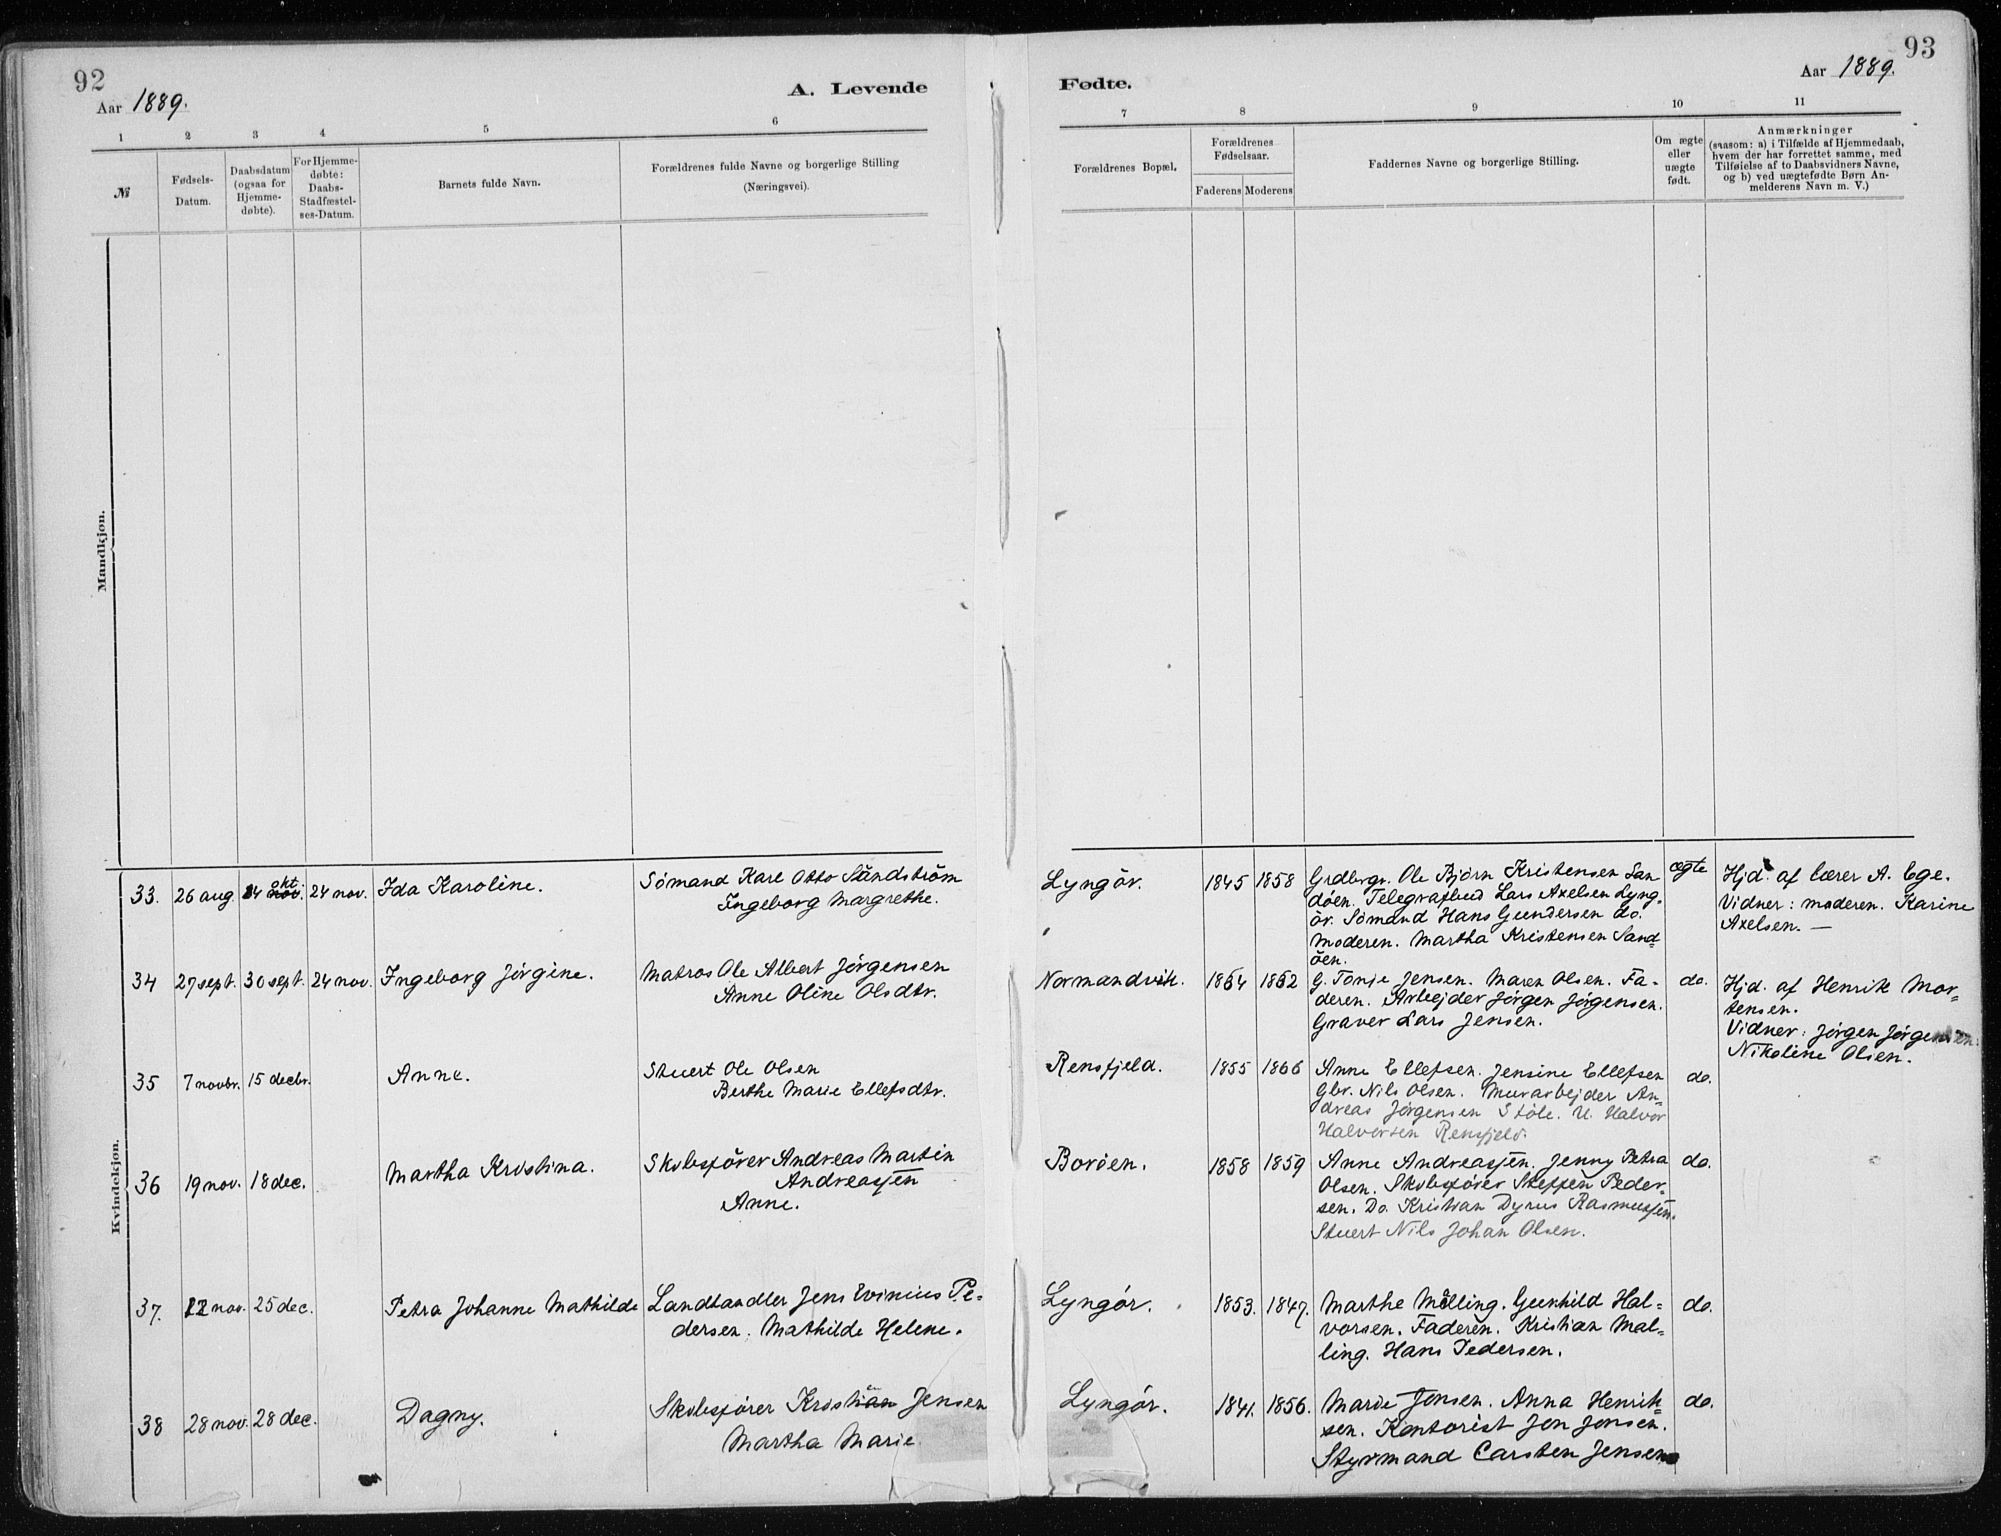 92
Aar 1889.
A. Levende
1 2 3 4 5 6
№
Fødsels-
Datum.
Daabsdatum
(ogsaa for
Hjemme-
døbte).
For Hjemme-
døbte:
Daabs-
Stadfæstel-
ses-Datum.
Barnets fulde Navn.
Forældrenes fulde Navne og borgerlige Stilling
(Næringsvei).
Mandkjøn.
Kvindekjøn.
33. 26 aug. 24 nov. okt. 24 nov. Ida Karoline.
Sömand Karl Otto Sandström
Ingeborg Margrethe.
34 27 sept. 30 sept. 24 nov. Ingeborg Jörgine.
Matros Ole Albert Jörgensen
Anne Oline Olsdtr.
35 7 novbr. 15 decbr. Anne.
Stuert Ole Olsen
Berthe Marie Ellefsdtr.
36 19 nov. 18 dec. Martha Kristina.
Skibsförer Andreas Martin
Andreassen
Anne.
37. 22 nov. 25 dec. Petra Johanne Mathilde
Landhandler Jens Evinius Pe-
dersen. Mathilde Helene.
38 28 nov. 28 dec. Dagny.
Skibsförer Kristian Jensen
Martha Marie
93
Aar 1889.
Fødte.
7 8 9 10 11
Forældrenes Bopæl.
Forældrenes
Fødselsaar.
Faderens Moderens
Faddernes Navne og borgerlige Stilling.
Om ægte
eller
uægte
født.
Anmærkninger
(saasom: a) i Tilfælde af Hjemmedaab,
hvem der har forrettet samme, med
Tilføielse af to Daabsvidners Navne,
og b) ved uægtefødte Børn An-
melderens Navn m. V.)
Lyngör. 1845 1858
Grdbrgr. Ole Björn Kristensen San
döen. Telegrafbud Lars Axelsen Lyng-
ör. Sömand Hans Gundersen do.
Moderen. Martha Kristensen Sand-
öen.
ægte
Hjd. af lærer A. Ege.
Vidner: moderen. Karine
Axelsen. —
Normandvik. 1864 1862
G. Tonje Jensen. Maren Olsen. Fa-
deren. Arbejder Jörgen Jörgensen.
Graver Lars Jensen.
do.
Hjd. af Henrik Mor-
tensen.
Vidner: Jörgen Jörgensen.
Nikoline Olsen.
Rensfjeld. 1855 1866
Anne Ellefsen. Jensine Ellefsen
Gbr. Nils Olsen. Murarbejder An-
dreas Jörgensen Stöle. U. Halvor
Halvorsen Rensfjeld.
do.
Boröen. 1858 1859
Anne Andreassen. Jenny Petra
Olsen. Skibsförer Steffen Peder-
sen. Do. Kristian Dyrus Rasmussen.
Stuert Nils Johan Olsen.
do.
Lyngör. 1853. 1847.
Marthe Malling. Gunhild Hal-
vorsen. Faderen. Kristian Mal-
ling. Hans Pedersen.
do.
Lyngör. 1841. 1856.
Marie Jensen. Anna Henrik-
sen. Kontorist Jon Jonsen.
Styrmand Carsten Jensen
do.